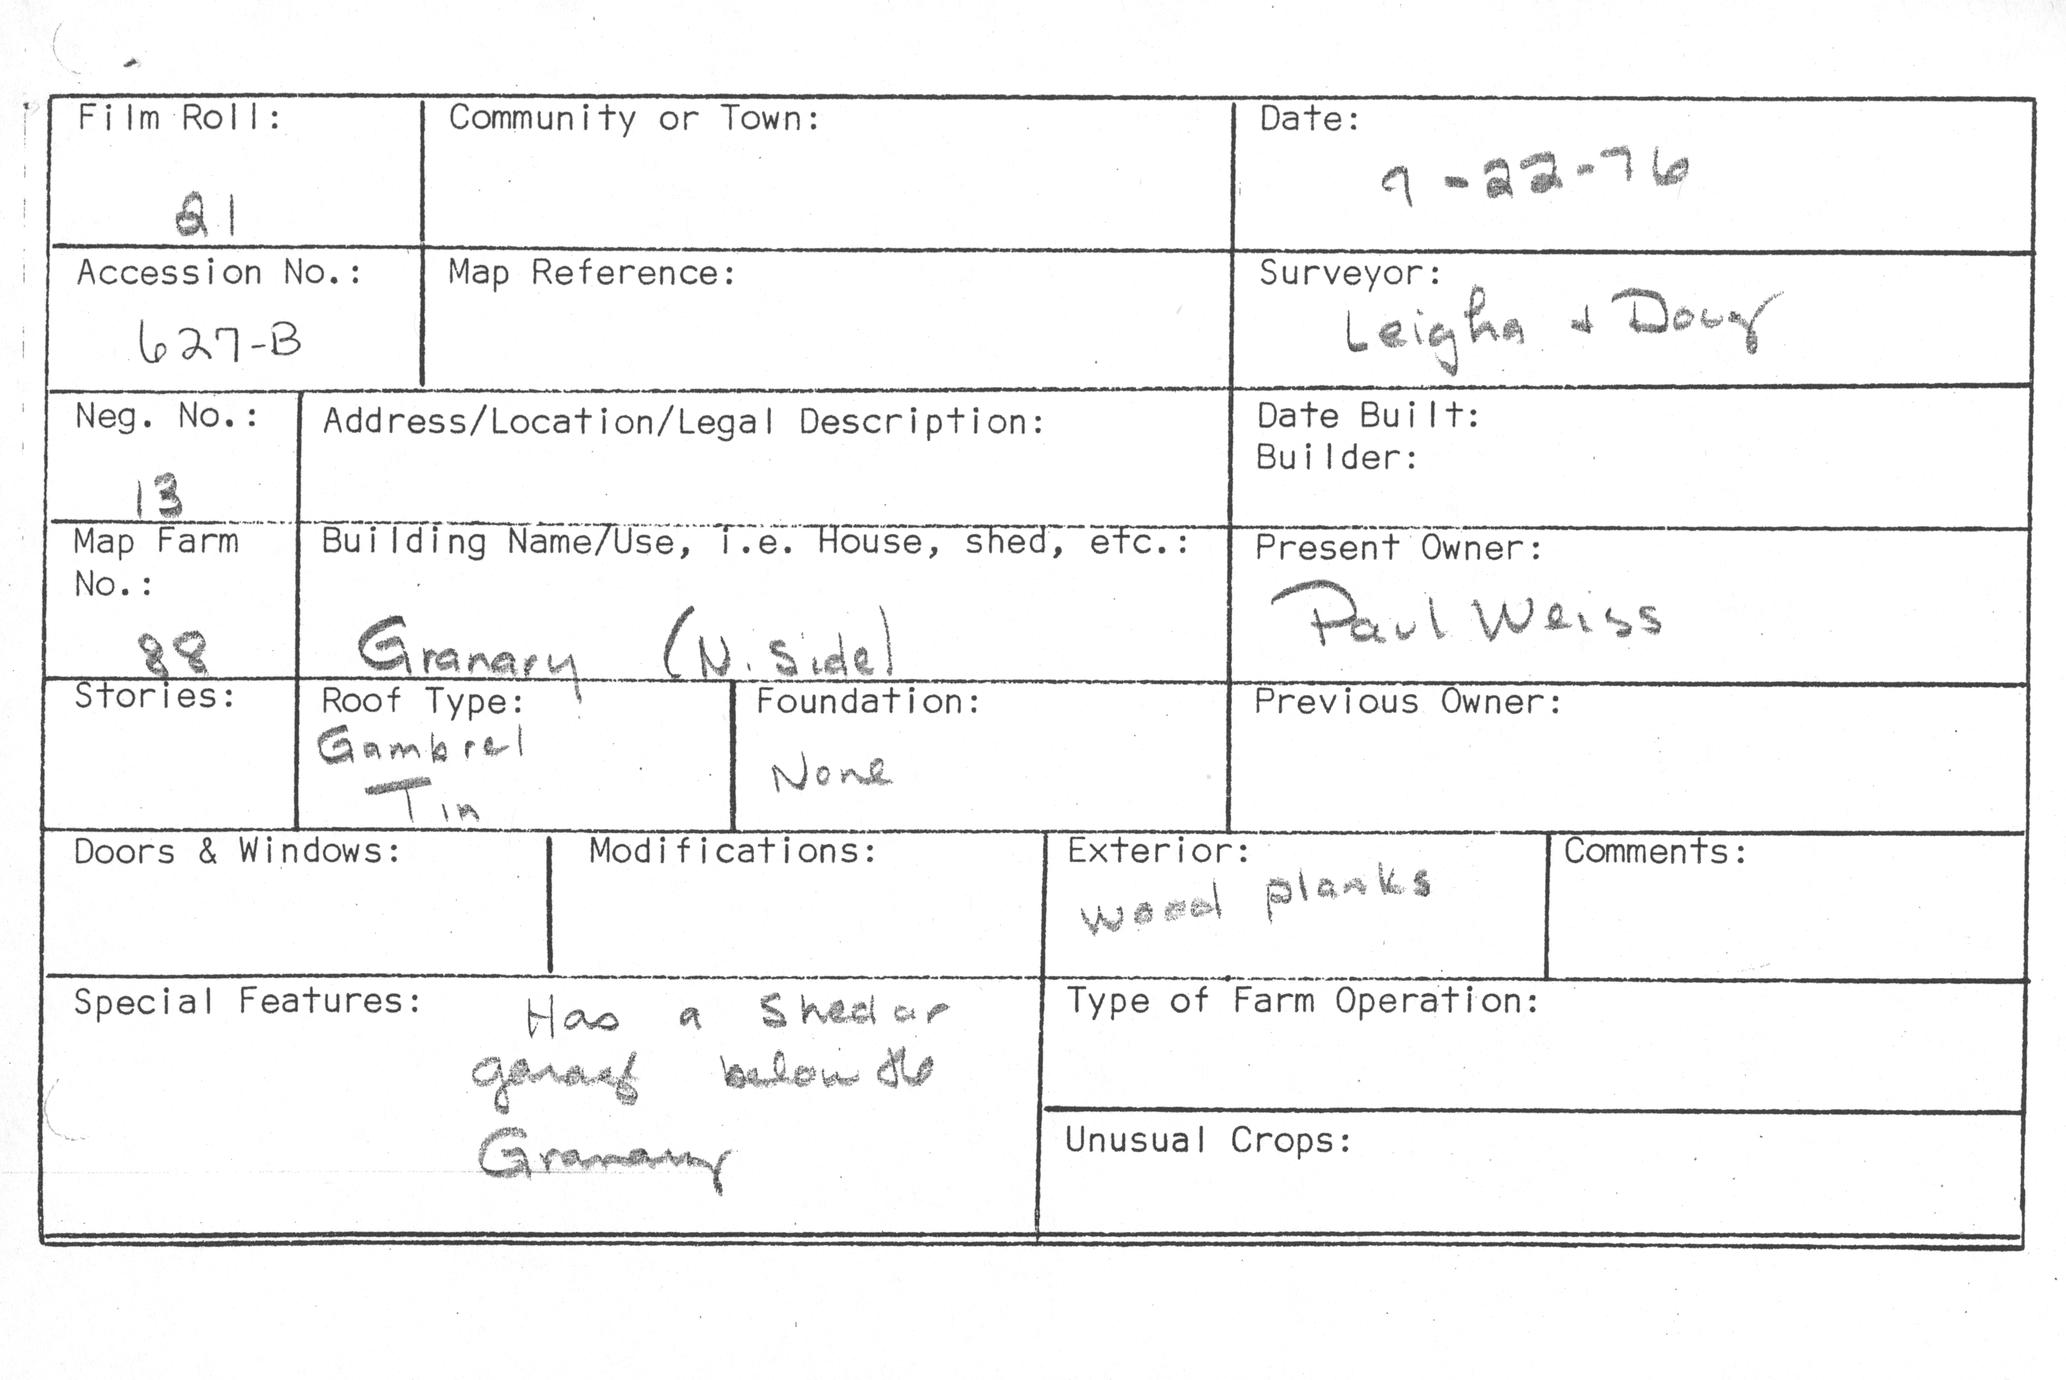 Film Roll:
21
Community or Town:
Date:
9-22-76
Accession No.:
627-B
Map Reference:
Surveyor:
Leigha + Doug
Neg. No.:
13
Address/Location/Legal Description:
Date Built:
Builder:
Map Farm
No.:
88
Building Name/Use, i.e. House, shed, etc.:
Granary (N. Side)
Present Owner:
Paul Weiss
Stories:
Roof Type:
Gambrel
Tin
Foundation:
None
Previous Owner:
Doors & Windows:
Modifications:
Exterior:
wood planks
Comments:
Special Features:
Has a shed or
garage below the
Granary
Type of Farm Operation:
Unusual Crops: